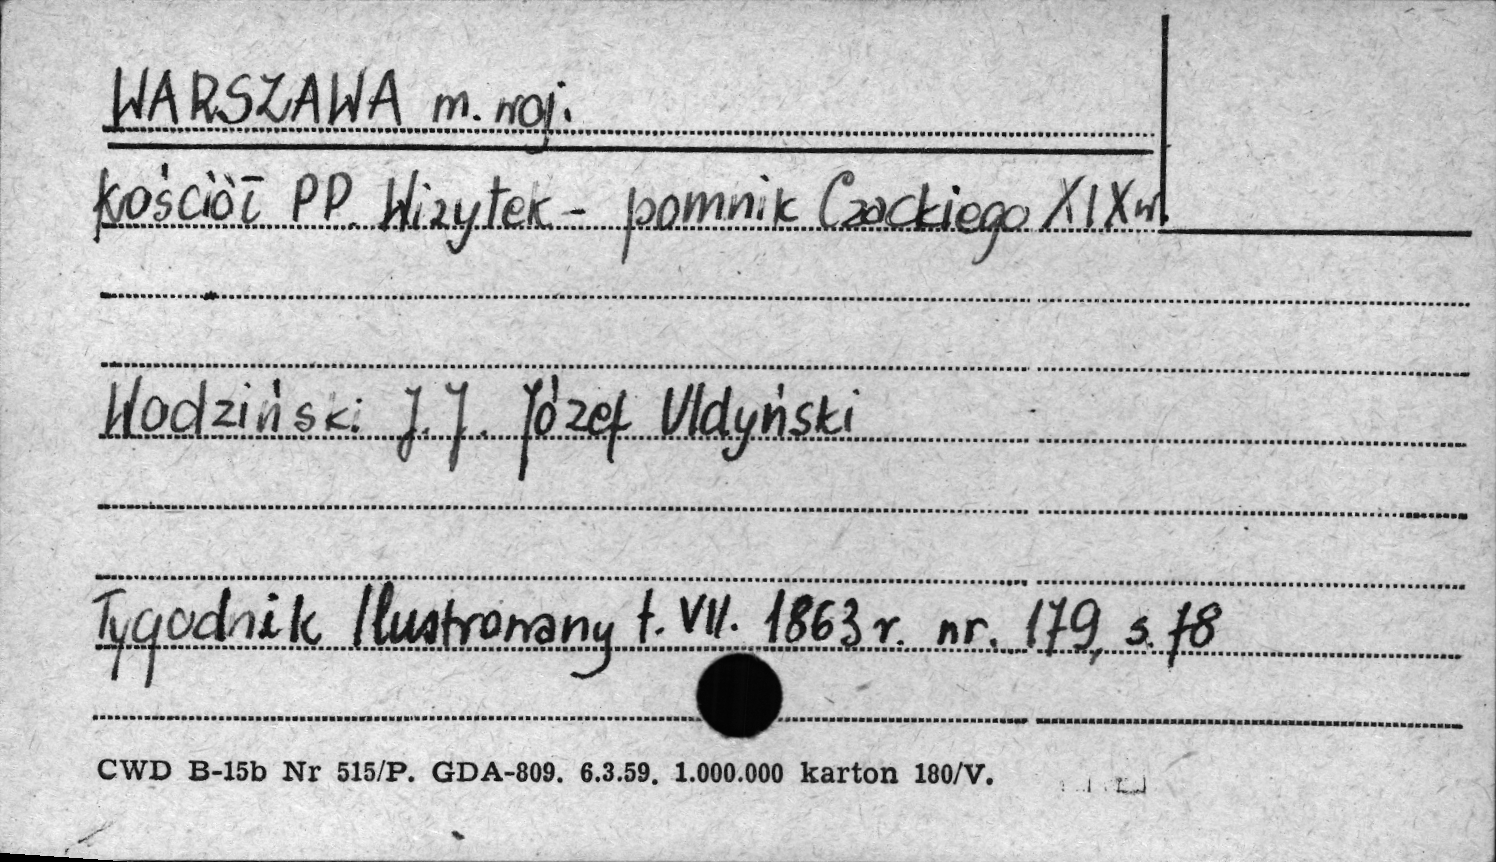 WARSZAWA m. woj.
Kościół PP. Wizytek - pomnik Czackiego XIX w.
Wodziński J. J. Józef Uldyński
Tygodnik Ilustrowany t. VII. 1863 r. nr. 179, s. 78
CWD B-15b Nr 515/P. GDA-809. 6.3.59. 1.000.000 karton 180/V.